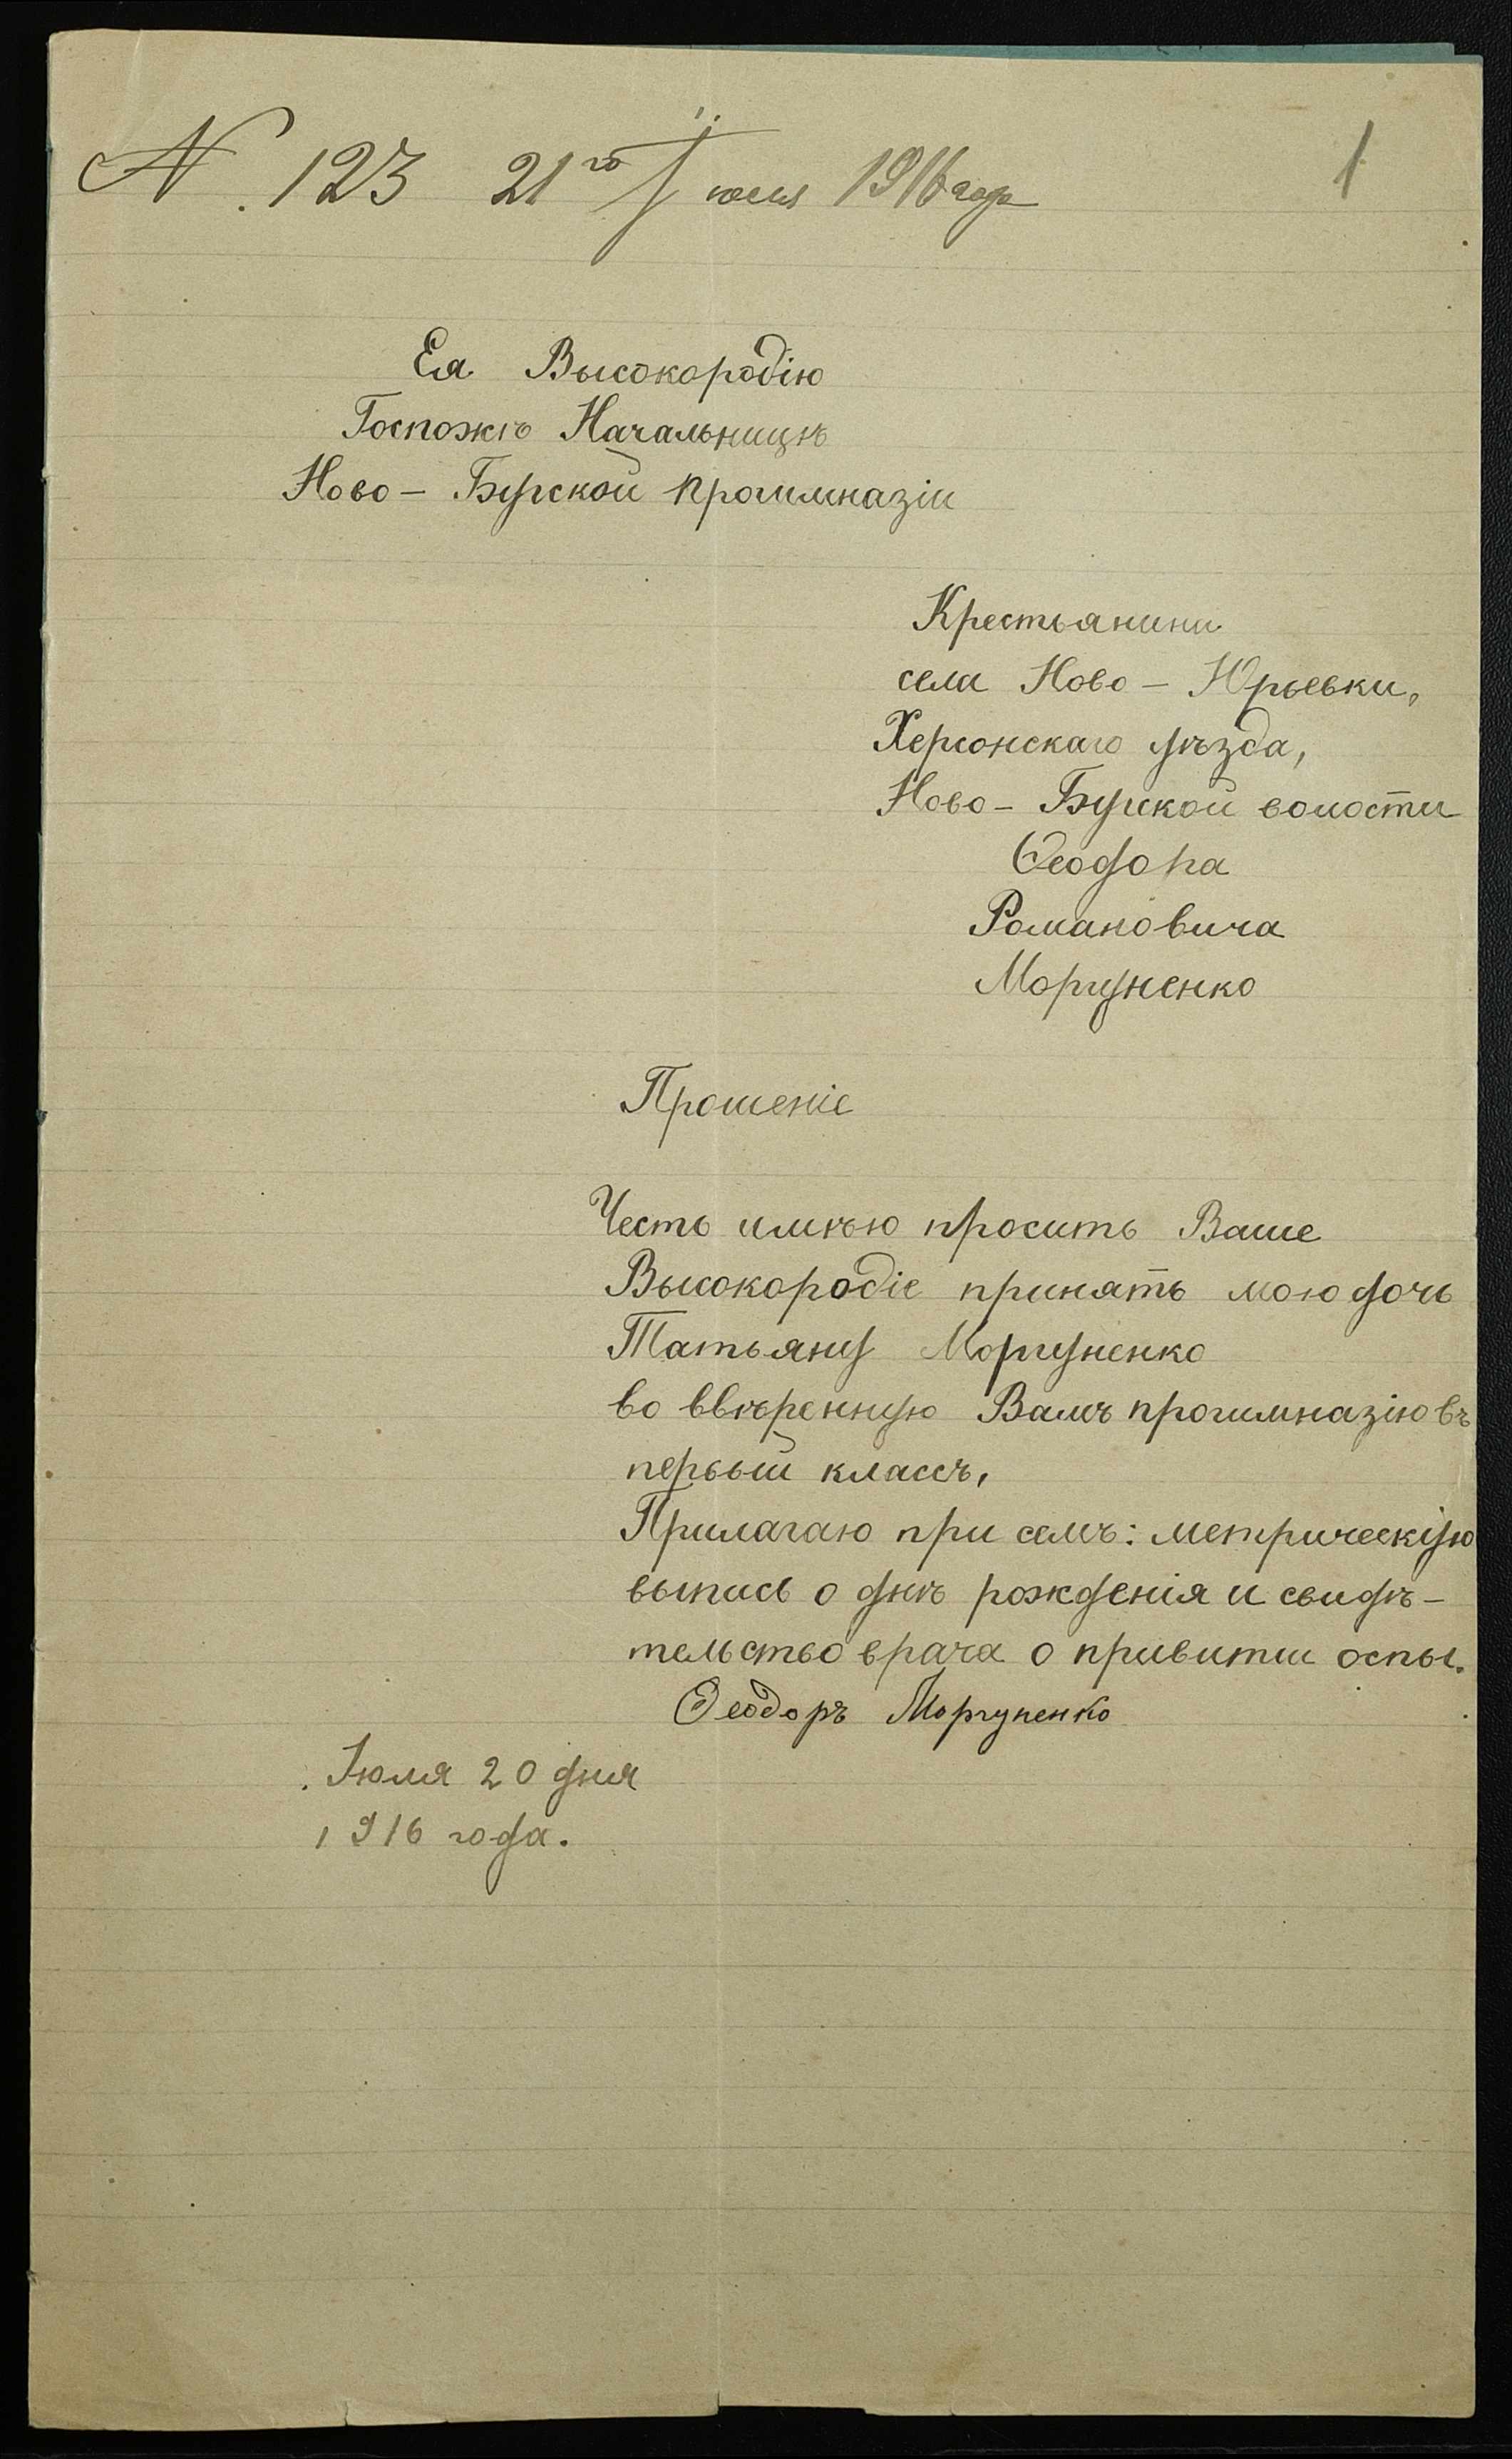 N. 123 21го Іюля 1916 года
1
Ея Высокородію
Госпожѣ Начальницѣ
Ново - Бугской прогимназіи
Крестьянина
села Ново - Юрьевки,
Херсонскаго уѣзда,
Ново - Бугской волости
Ѳеодора
Романовича
Моргуненко
Прошеніе
Честь имѣю просить Ваше
Высокородіе принять мою дочь
Татьяну Моргуненко
во ввѣренную Вамъ прогимназію въ
первый классъ,
Прилагаю при семъ: метрическую
выпись о днѣ рожденія и свидѣ-
тельство врача о привитіи оспы.
Ѳеодоръ Моргуненко
Іюля 20 дня
1916 года.